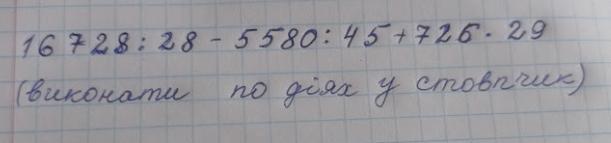 16 728 : 28 - 5580 : 45 + 726 · 29
(виконати по діях у стовпчик)